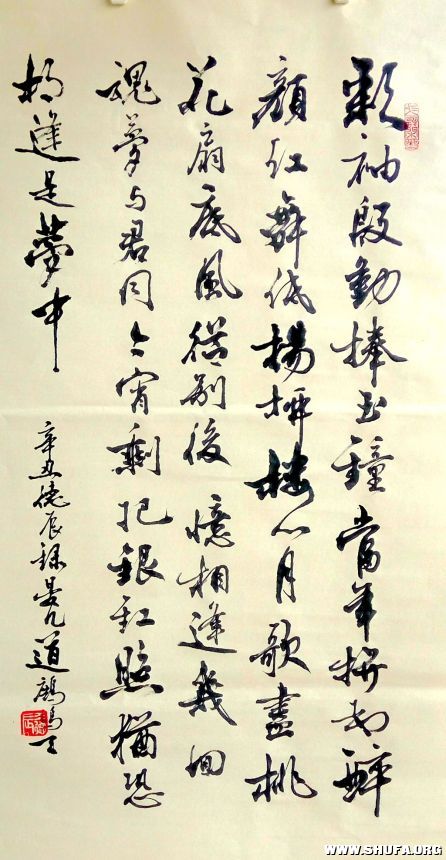 彩袖殷勤捧玉鐘當年拚却醉
顏紅舞低楊柳樓心月歌盡桃
花扇底風從別後憶相逢幾回
魂夢与君同今宵剩把銀釭照猶恐
相逢是夢中
辛丑德辰録晏几道鷓鴣天
WWW.SHUFA.ORG